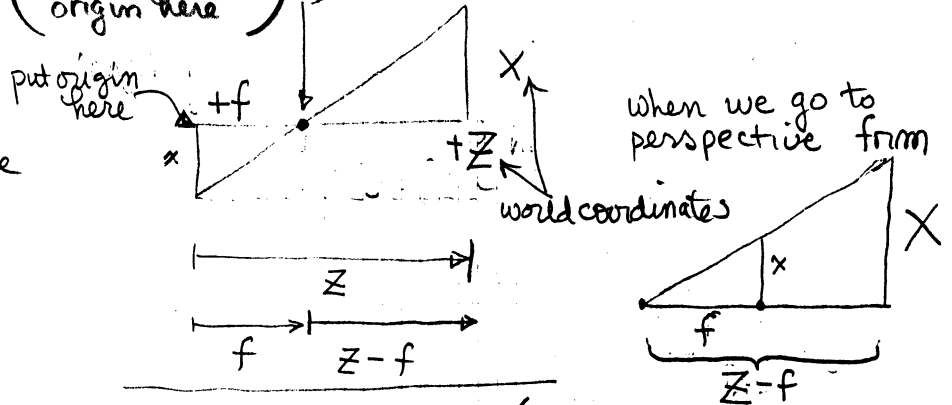 origin here
put origin
here
+f
x
X
+Z
world coordinates
Z
f
Z-f
when we go to
perspective form
x
X
f
Z-f